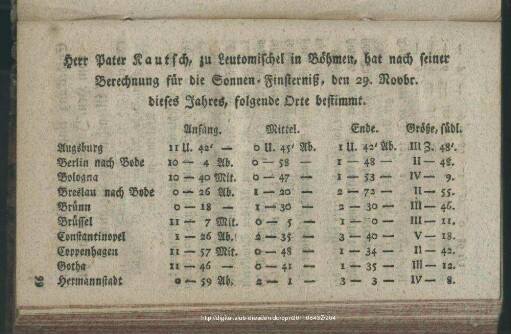 Herr Pater Kautsch, zu Leutomischel in Böhmen, hat nach seiner
Berechnung für die Sonnen-Finsterniß, den 29. Novbr.
dieses Jahres, folgende Orte bestimmt.
Anfang. Mittel. Ende. Größe, südl.
Augsburg 11 U. 42' — 0 U. 45' Ab. 1 U. 42' Ab. III Z. 48'.
Berlin nach Bode 10 — 4 Ab. 0 — 58 — 1 — 48 — II — 48.
Bologna 10 — 40 Mit. 0 — 47 — 1 — 53 — IV — 9.
Breslau nach Bode 0 — 26 Ab. 1 — 20 — 2 — 72 — II — 55.
Brünn 0 — 18 — 1 — 30 — 2 — 30 — III — 46.
Brüssel 11 — 7 Mit. 0 — 5 — 1 — 0 — III — 11.
Constantinopel 1 — 26 Ab. 2 — 35 — 3 — 40 — V — 18.
Coppenhagen 11 — 57 Mit. 0 — 48 — 1 — 34 — II — 42.
Gotha 11 — 46 — 0 — 41 — 1 — 35 — III — 12.
Hermannstadt 0 — 59 Ab. 2 — 1 — 3 — 3 — IV — 8.
99